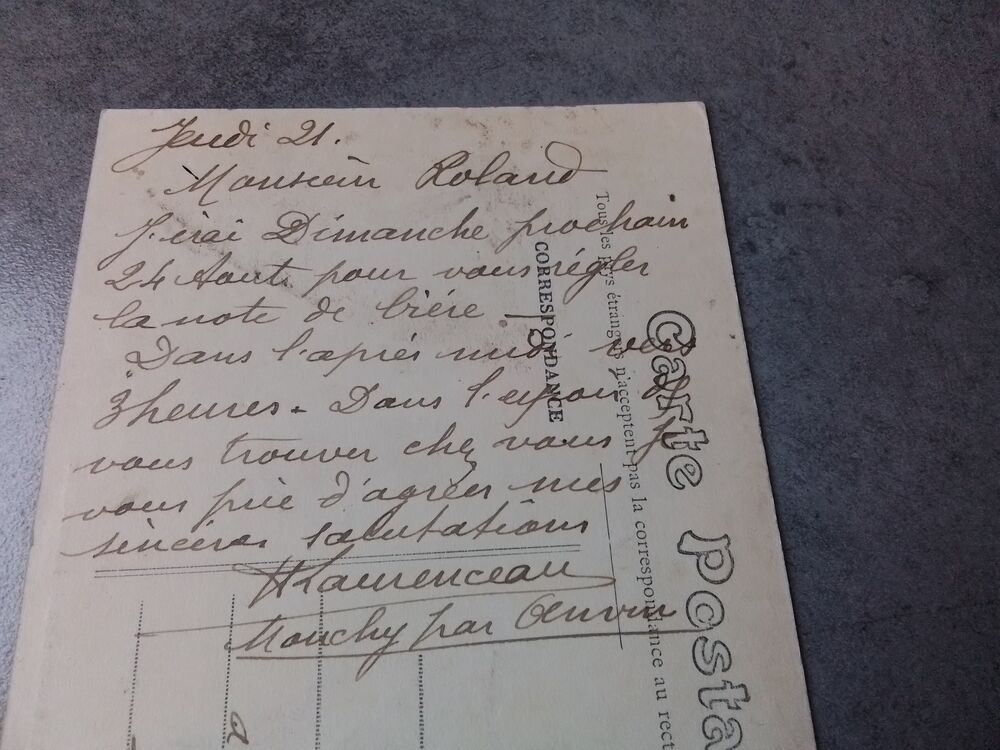 Jeudi 21.
Monsieur Roland
J'irai Dimanche prochain
24 Aout pour vous régler
la note de bière –
Dans l'après midi vers
3 heures. Dans l'espoir de
vous trouver chez vous je
vous prie d'agréer mes
sincères salutations
HLaurenceau
Monchy par Anvin
CORRESPONDANCE
Tous les pays étrangers n'acceptent pas la correspondance au rect
Carte posta